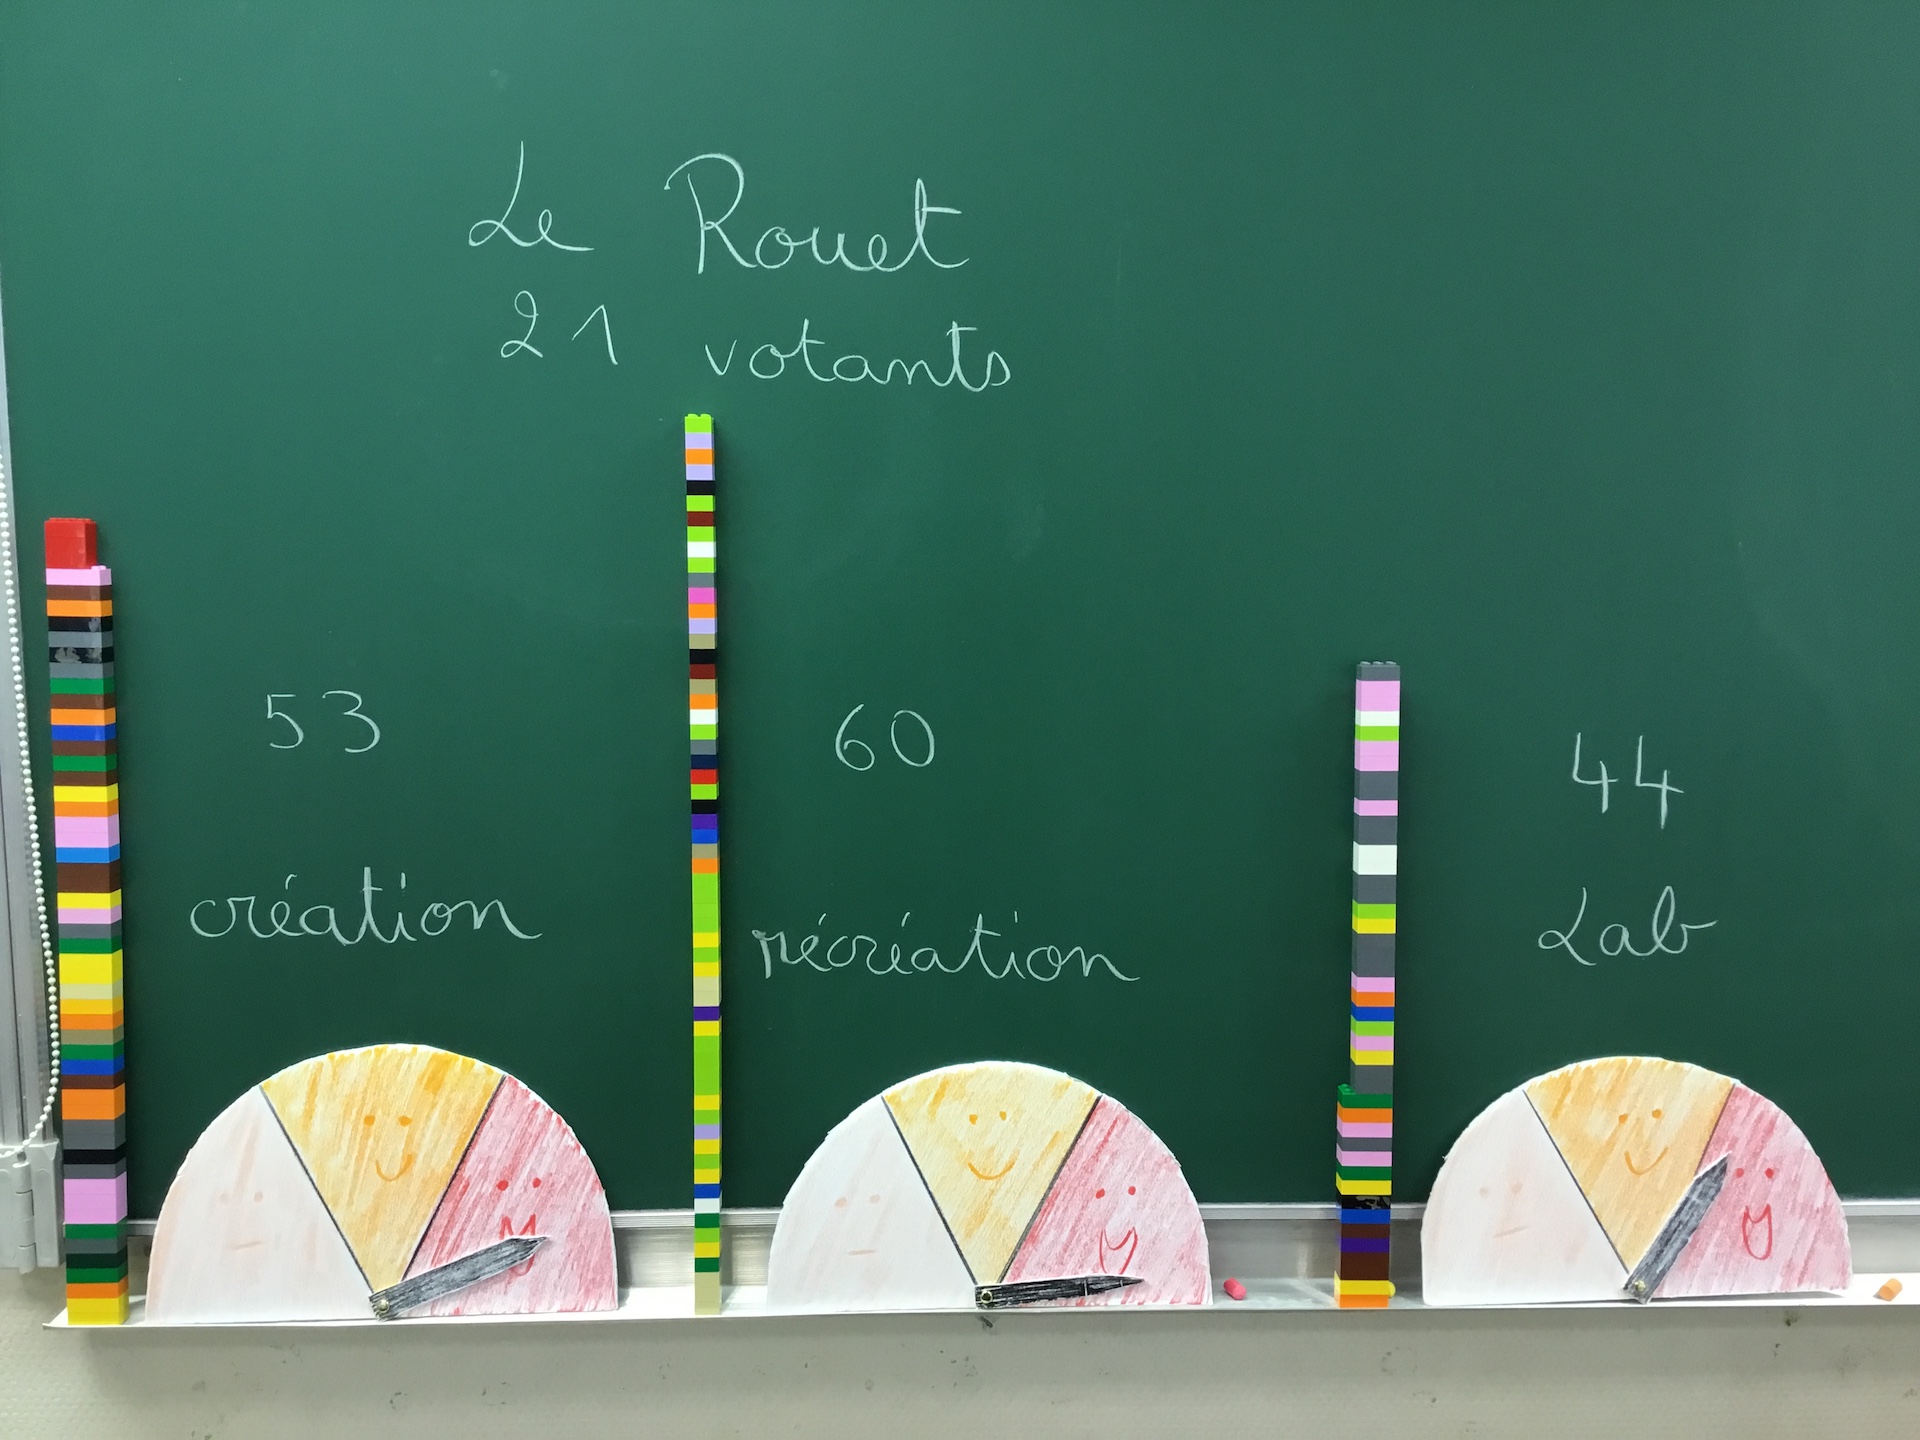 Le Rouet
21 votants
53
60
44
création
récréation
Lab